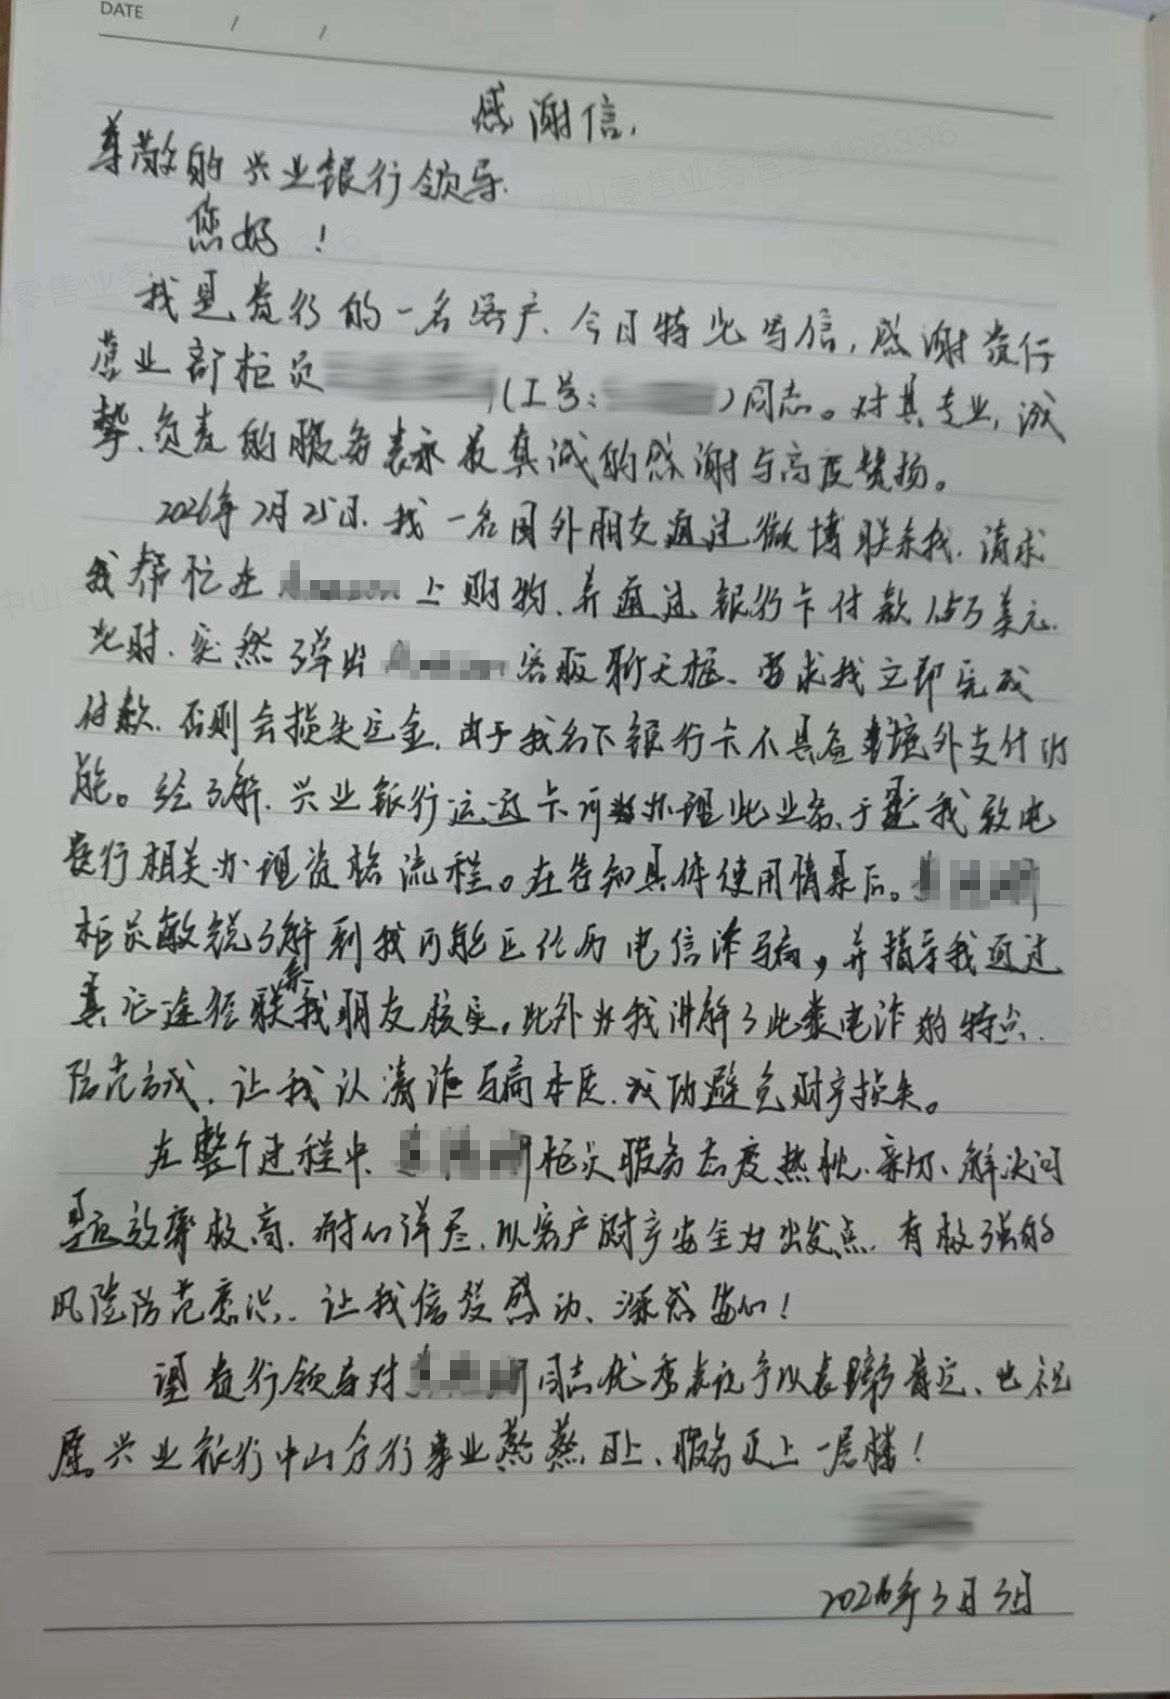 DATE / /
感谢信
尊敬的兴业银行领导
您好！
我是贵行的一名客户、今日特此写信，感谢贵行
营业部柜员（工号：）同志。对其专业，诚
挚、负责的服务表示最真诚的感谢与高度赞扬。
2026年2月25日、我一名国外朋友通过微博联系我、请求
我帮忙在上购物、并通过银行卡付款1.5万美元.
此时、突然弹出客服聊天框、要求我立即完成
付款、否则会损失定金，由于我名下银行卡不具备境外支付功
能。经了解、兴业银行运通卡可办理此业务、于是我致电
贵行相关办理资格流程。在告知具体使用情景后。
柜员敏锐了解到我可能正经历电信诈骗，并指导我通过
其它途径联系我朋友核实，此外为我讲解了此类电诈的特点、
防范方式、让我认清诈骗本质、成功避免财产损失。
在整个过程中、柜员服务态度热忱、亲切、解决问
题效率极高、耐心详尽、以客户财产安全为出发点、有极强的
风险防范意识，让我倍受感动、深感安心！
望贵行领导对同志优秀表现予以表彰肯定、也祝
愿兴业银行中山分行事业蒸蒸日上、服务更上一层楼！
2026年3月3日
中山零售业务管理 168336